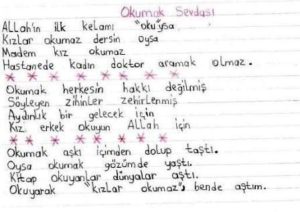 Okumak Sevdası
Allah'ın ilk kelamı "oku"ysa
Kızlar okumaz dersin oysa
Madem kız okumaz
Hastanede kadın doktor aramak olmaz.
* * * * * * * *
Okumak herkesin hakkı değilmiş
Söyleyen zihinler zehirlenmiş
Aydınlık bir gelecek için
Kız, erkek okuyun Allah için
* * * * * * * *
Okumak aşkı içimden dolup taştı.
Oysa okumak gözümde yaştı.
Kitap okuyanlar dünyalar aştı.
Okuyarak "kızlar okumaz"ı bende aştım.